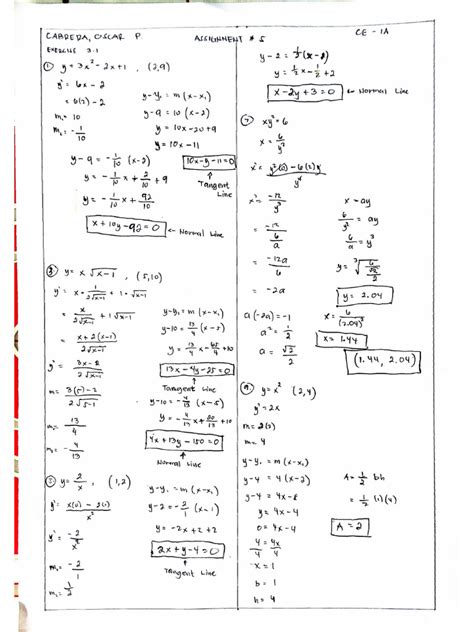 CABRERA, OSCAR P.
ASSIGNMENT # 5
CE - 1A
EXERCISE 3.1
① y = 3x² - 2x + 1 , (2,9)
y' = 6x - 2
= 6(2) - 2
m₁ = 10
m₂ = -1/10
y-y₁ = m (x-x₁)
y-9 = 10 (x-2)
y = 10x-20+9
y = 10x-11
10x-y-11=0
↑
Tangent
Line
y-9 = -1/10 (x-2)
y = -1/10 x + 2/10 + 9
y = -1/10 x + 92/10
x + 10y - 92 = 0 ← Normal Line
y = x √x-1 , (5,10)
y' = x · 1/2√x-1 + 1·√x-1
= x/2√x-1 + 1√x-1
= x + 2(x-1)/2√x-1
y' = 3x-2/2√x-1
m₁ = 3(5)-2/2√5-1
= 13/4
m₂ = -4/13
y-y₁ = m (x-x₁)
y-10 = 13/4 (x-5)
y = 13/4 x - 65/4 + 10
13x - 4y - 25 = 0
↑
Tangent Line
y-10 = -4/13 (x-5)
y = -4/13 x + 20/13 + 10
4x + 13y - 150 = 0
↑
Normal Line
⑤ y = 2/x , (1,2)
y' = x(0) - 2(1)/x²
y' = -2/x²
m₁ = -2/1
m₂ = 1/2
y-y₁ = m (x-x₁)
y-2 = -2/1 (x-1)
y = -2x + 2 + 2
2x + y - 4 = 0
↑
Tangent Line
y-2 = 1/2 (x-1)
y = 1/2 x - 1/2 + 2
x - 2y + 3 = 0 ← Normal Line
⑦ xy² = 6
x = 6/y²
x' = y²(0) - 6(2)y/y⁴
x' = -12/y³
= -12/6/a
= -12a/6
= -2a
a(-2a) = -1
a² = 1/2
a = √2/2
x = ay
6/y² = ay
6/a = y³
y = ³√6/√2/2
y = 2.04
x = 6/(2.04)²
x = 1.44
(1.44, 2.04)
⑨ y = x² (2,4)
y' = 2x
m = 2(2)
m = 4
y-y₁ = m (x-x₁)
y-4 = 4 (x-2)
y-4 = 4x-8
y = 4x-4
0 = 4x-4
4/4 = 4x/4
x = 1
b = 1
h = 4
A = 1/2 bh
= 1/2 (1)(4)
A = 2